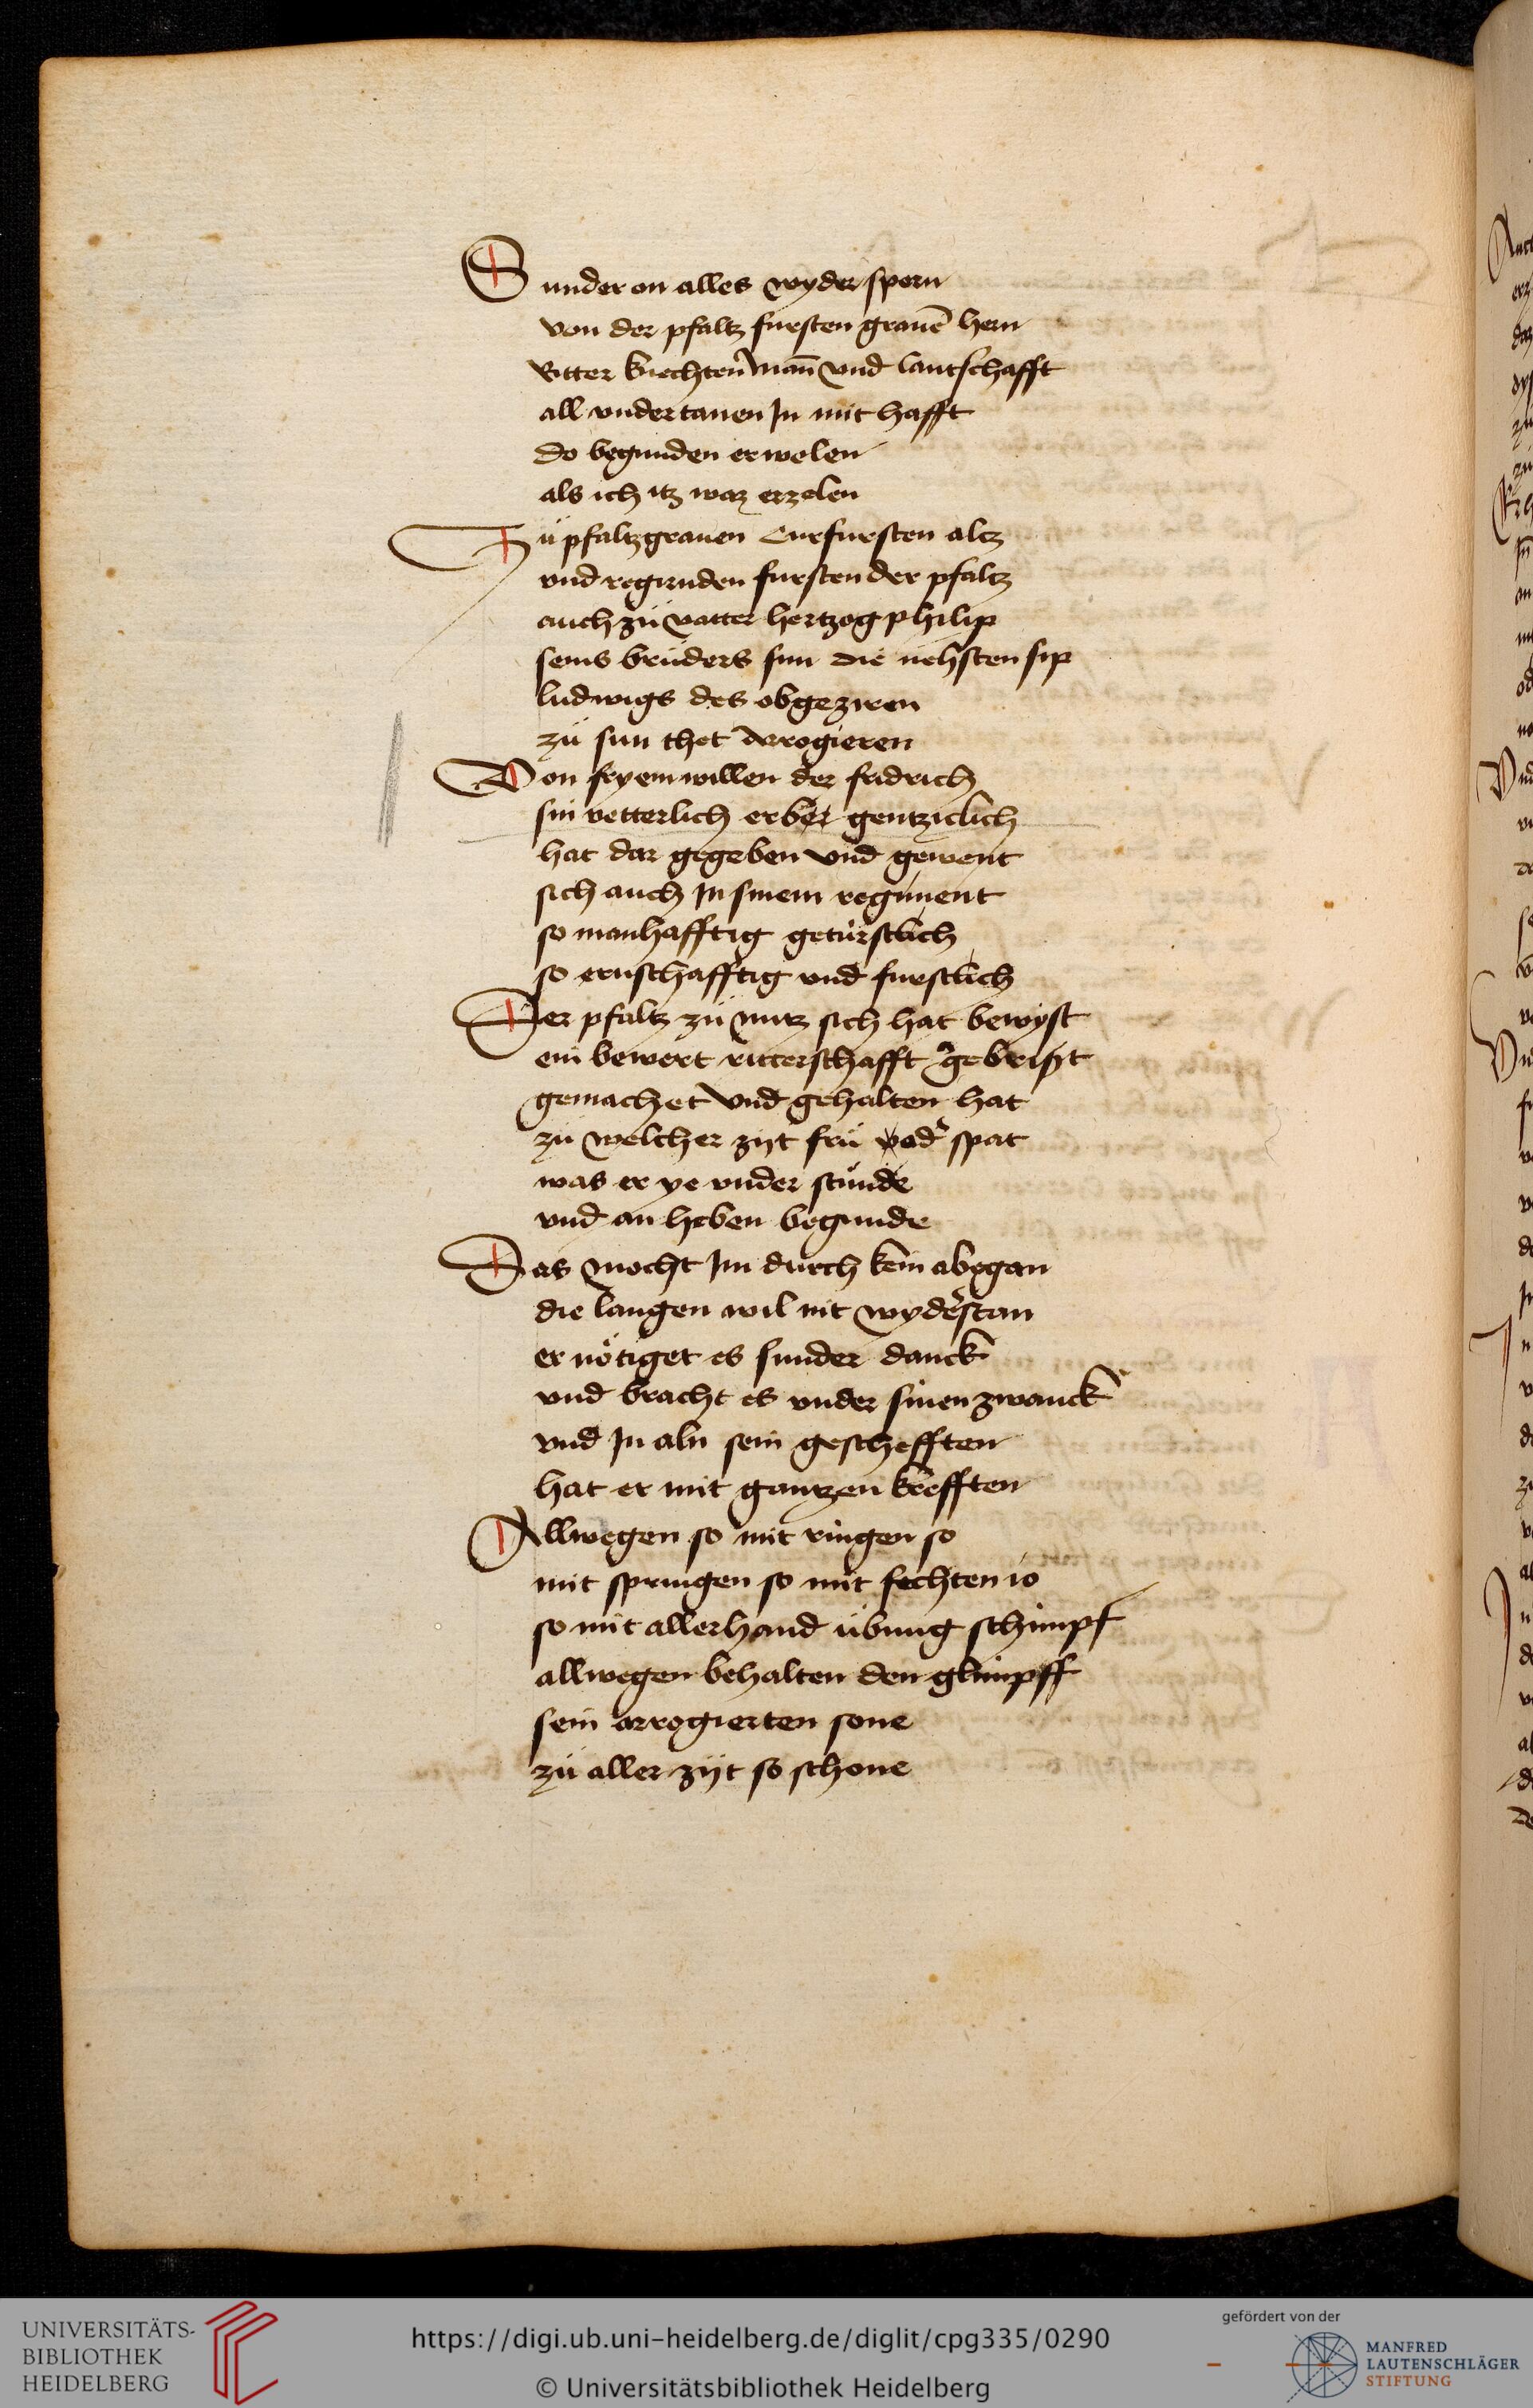 Sunder on alles wyder spern
von der pfaltz fursten grauē hern
Ritter knechten man̄ vnd lantschafft
all vndertanen Jn mit hafft
do begunden erwelen
als ich itz waz erzelen
Zü pfaltzgrauen Curfursten altz
vnd regirnden fursten der pfaltz
auch zü vatter hertzog philip
seins brüders sun die nehsten sip
ludwigs des obgeziren
zü sun thet Arrogieren
Von fryem willen der fridrich
sin vetterlich erber gentziclich
hat dar gegeben vnd gewent
sich auch Jn sinem regiment
so manhafftig getürstlich
so ernschafftig vnd furstlich
Der pfaltz zü nutz sich hat bewyst
ein bewert ritterschafft gebrist
gemachet vnd gehalten hat
zü welcher zijt frü od' spat
was er ye vnder stünde
vnd an heben begunde
Das mocht Jm durch kein abegan
die langen wil nit wyd'stan
er nötiget es sunder danck
vnd bracht es vnder sinen zwanck
vnd Jn aln sein geschefften
hat er mit gantzen krefften
Allwegen so mit ringen so
mit springen so mit fechten io
so mit allerhand übung schimpf
allwegen behalten den glimpff
sein arrogierten sone
zü aller zijt so schone
UNIVERSITÄTS-
BIBLIOTHEK
HEIDELBERG
https://digi.ub.uni-heidelberg.de/diglit/cpg335/0290
© Universitätsbibliothek Heidelberg
gefördert von der
MANFRED
LAUTENSCHLÄGER
STIFTUNG